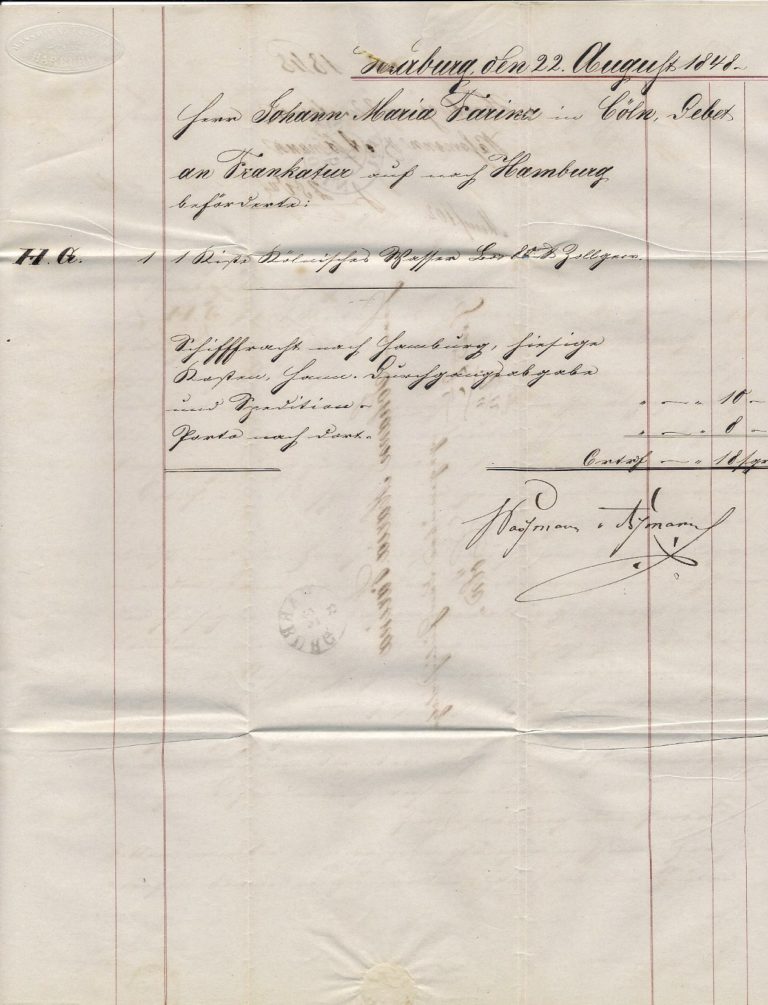 Harburg, den 22. August 1848.
Herr Johann Maria Farina in Cöln, Debet
an Frankatur auf nach Hamburg
beförderte:
H. G. 1 1 Kiste Kölnisches Wasser Zollgew.
Schifffracht nach Hamburg, hiesige
Kosten, Hann. Durchgangsabgabe
und Spedition. " — " 10 —
Porto nach dort. " — " 8 —
— " 18 sgr